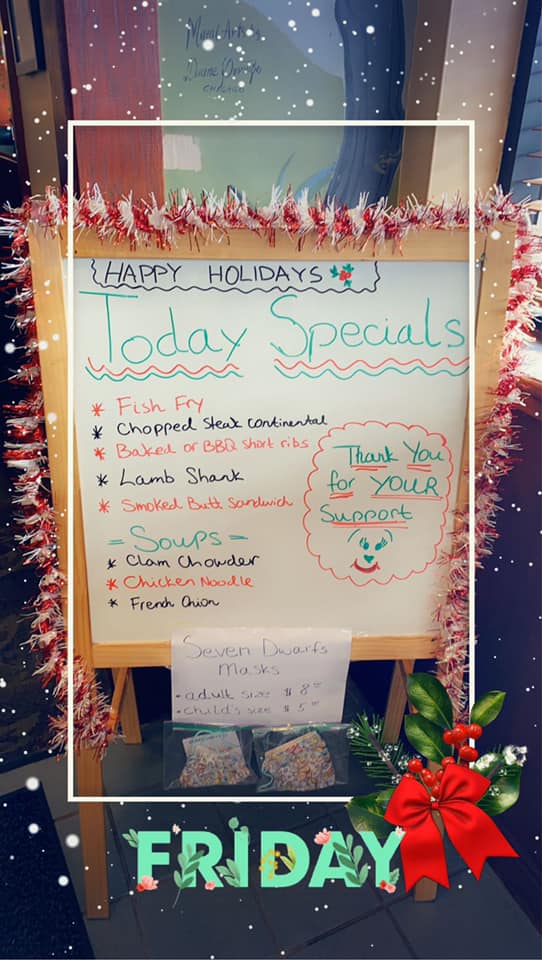 Mural Art by
Diane
CHICAGO
HAPPY HOLIDAYS
Today Specials
* Fish Fry
* Chopped Steak Continental
* Baked or BBQ Short ribs
* Lamb Shank
* Smoked Butt Sandwich
= Soups =
* Clam Chowder
* Chicken Noodle
* French Onion
Thank You
for YOUR
Support
Seven Dwarfs
Masks
• adult size $8
• child's size $5
FRIDAY